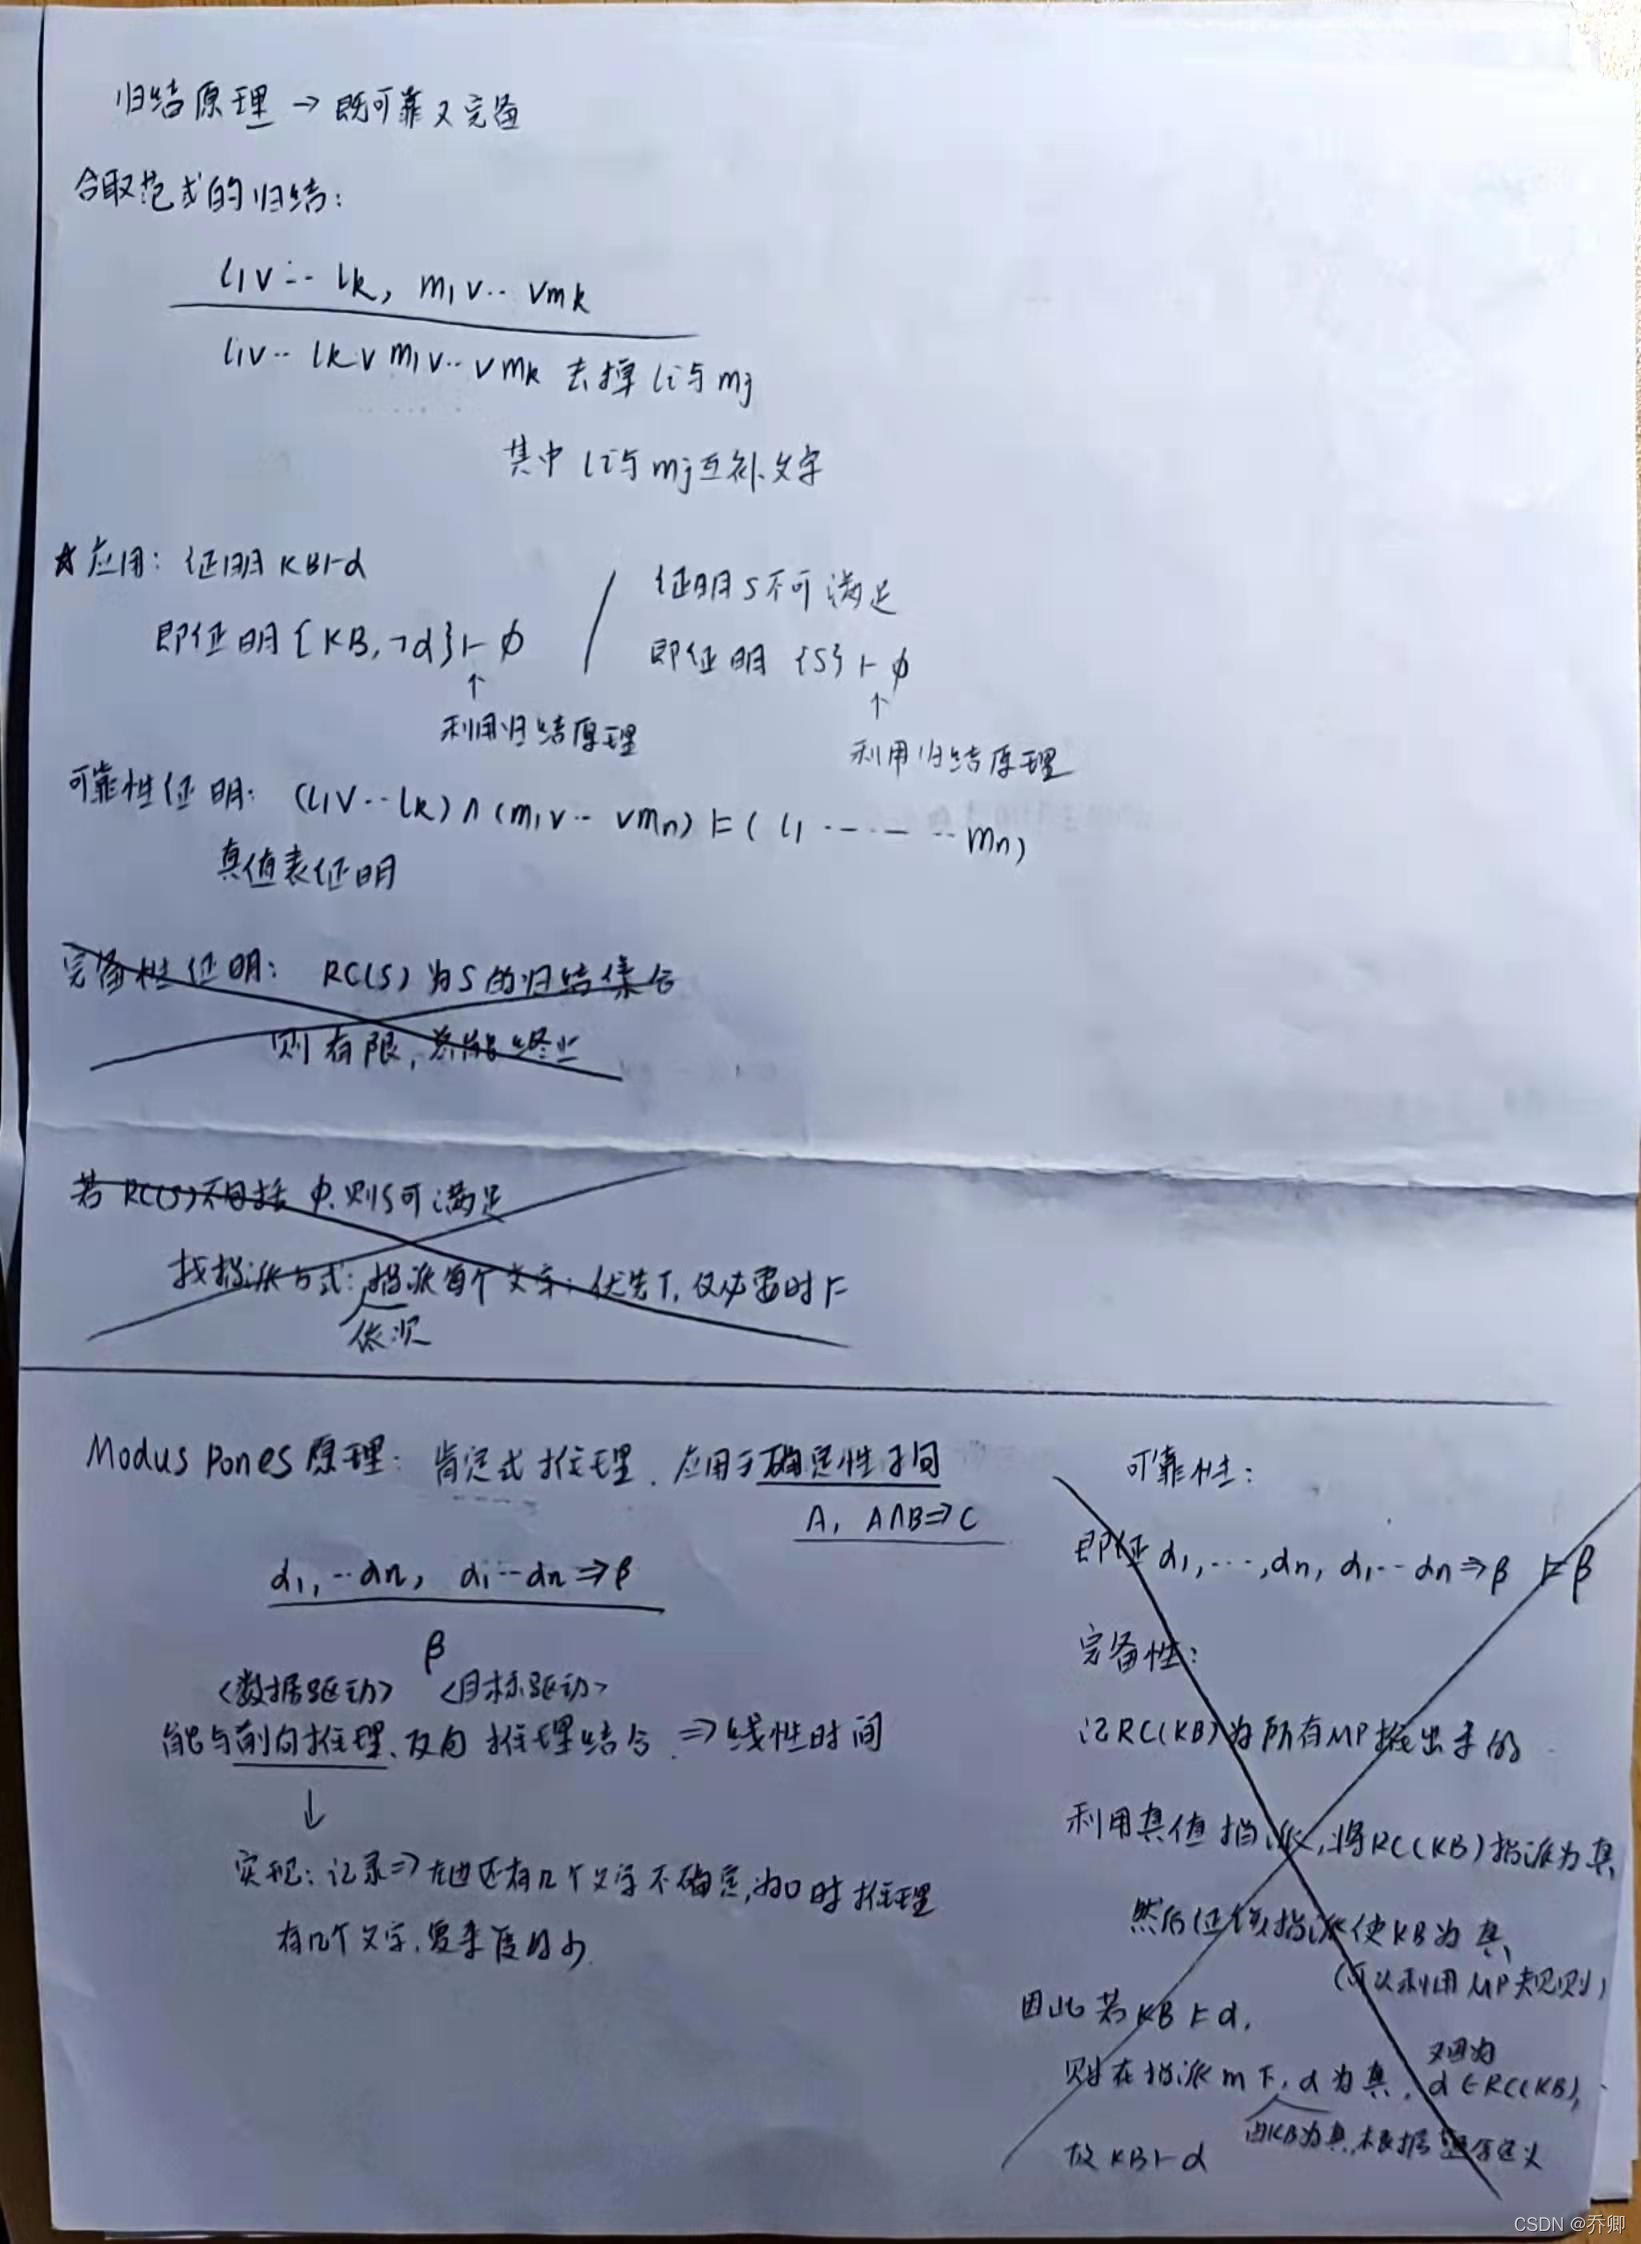 归结原理 → 既可靠又完备
合取范式的归结:
l1∨… lk, m1∨… ∨mk
l1∨… lk∨m1∨… ∨mk 去掉li与mj
其中 li与mj互补文字
☆应用: 证明KB⊢α
即证明{KB,¬α}⊢∅
↑
利用归结原理
证明S不可满足
即证明 {S}⊢∅
↑
利用归结原理
可靠性证明: (l1∨… lk)∧(m1∨… ∨mn)⊨( l1 … … mn)
真值表证明
完备性证明: RC(S)为S的归结集合
则有限,总能终止
若RC(S)不包括∅,则S可满足
找指派方式:指派每个文字:优先T,仅必要时F
依次
Modus Pones原理: 肯定式推理. 应用于确定性子句
A, A∧B⇒C
α1,…αn, α1…αn⇒β
β
<数据驱动> <目标驱动>
能与前向推理、反向推理结合 ⇒线性时间
↓
实现:记录⇒左边还有几个文字不确定,为0时推理
有几个文字,复杂度为
可靠性:
即证α1,…,αn, α1…αn⇒β ⊨β
完备性:
记RC(KB)为所有MP推出来的
利用真值指派,将RC(KB)指派为真
然后证该指派使KB为真
(可以利用MP规则)
因此若KB⊨α,
则在指派m下,α为真,
又因为
α∈RC(KB),
由KB为真,根据蕴含定义
故KB⊢α
CSDN @乔卿